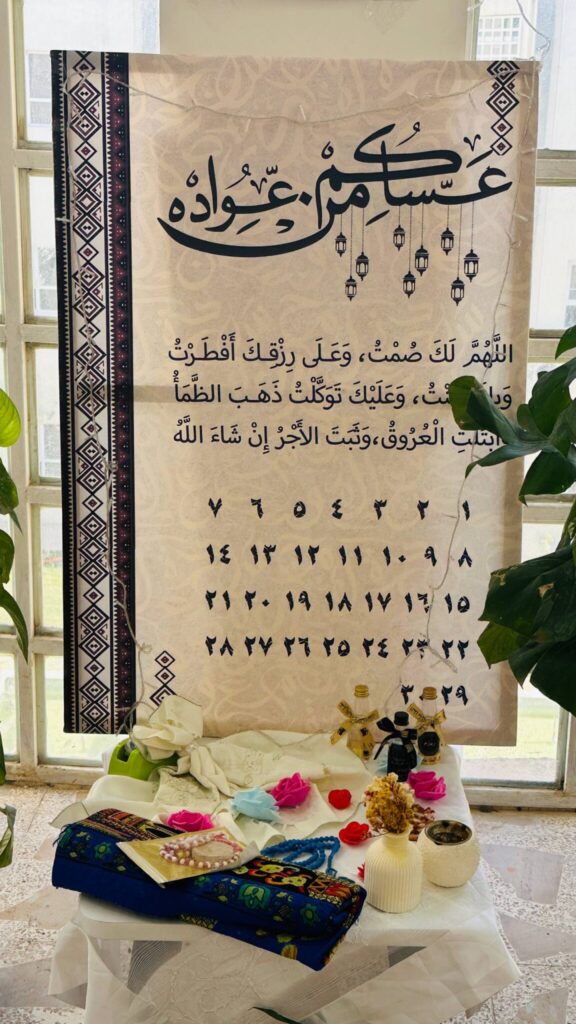 عساكم من عواده
اللَّهُمَّ لَكَ صُمْتُ، وَعَـلَى رِزْقِـكَ أَفْطَـرْتُ
وَعَلَيْكَ تَوَكَّلْتُ ذَهَـبَ الظَّمَأُ
ابْتَلَّتِ الْعُرُوقُ، وَثَبَتَ الأَجْرُ إِنْ شَاءَ اللَّهُ
١ ٢ ٣ ٤ ٥ ٦ ٧
٨ ٩ ١٠ ١١ ١٢ ١٣ ١٤
١٥ ١٦ ١٧ ١٨ ١٩ ٢٠ ٢١
٢٢ ٢٣ ٢٤ ٢٥ ٢٦ ٢٧ ٢٨
٢٩ ٣٠